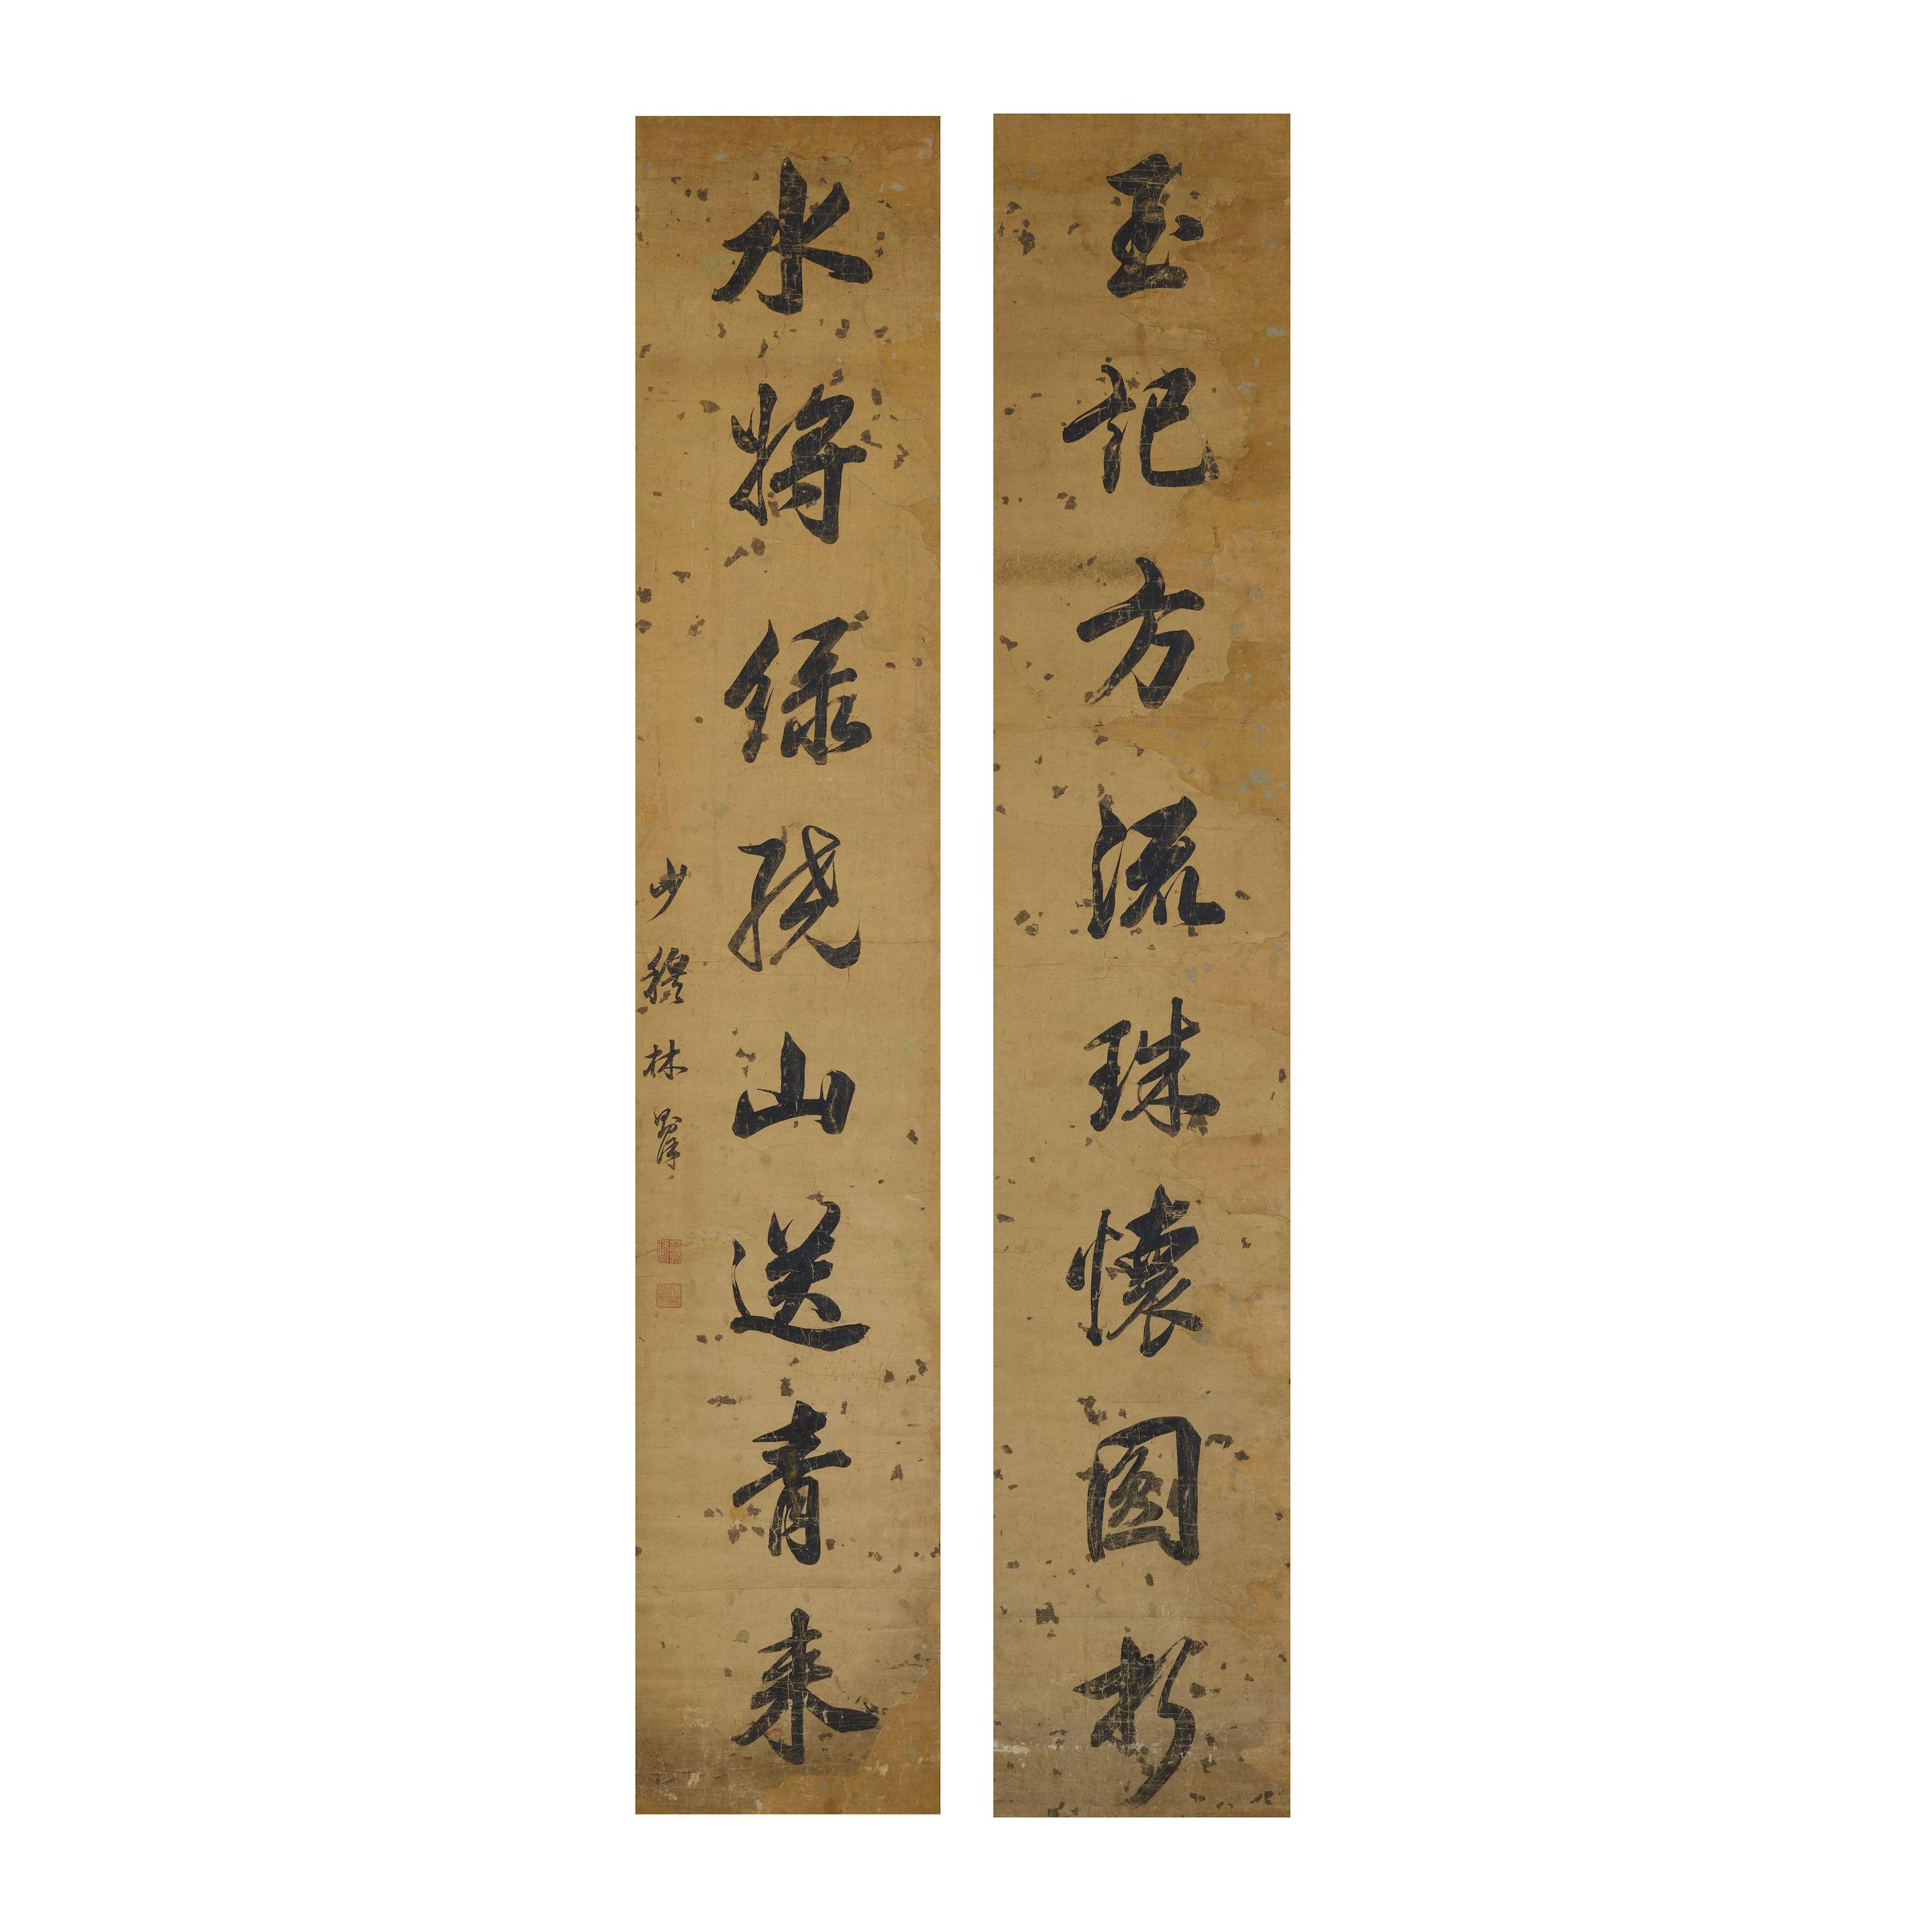 玉記方流珠懷圓折
水將綠繞山送青來
少穆林則徐